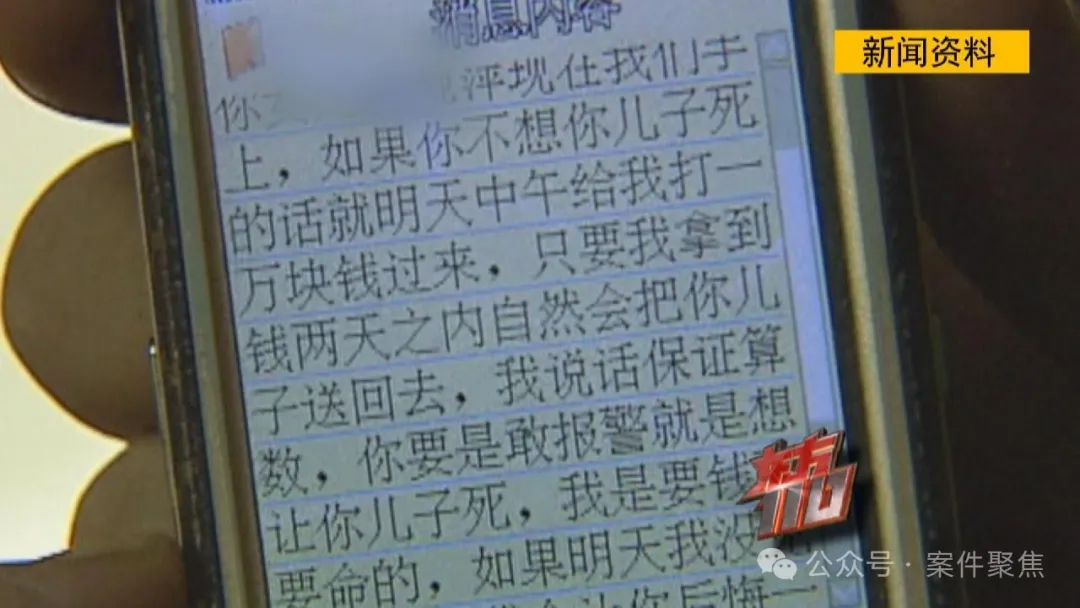 新闻资料
消息内容
你 评现在我们手
上，如果你不想你儿子死
的话就明天中午给我打一
万块钱过来，只要我拿到
钱两天之内自然会把你儿
子送回去，我说话保证算
数，你要是敢报警就是想
让你儿子死，我是要钱
要命的，如果明天我没
让你后悔一
公众号·案件聚焦